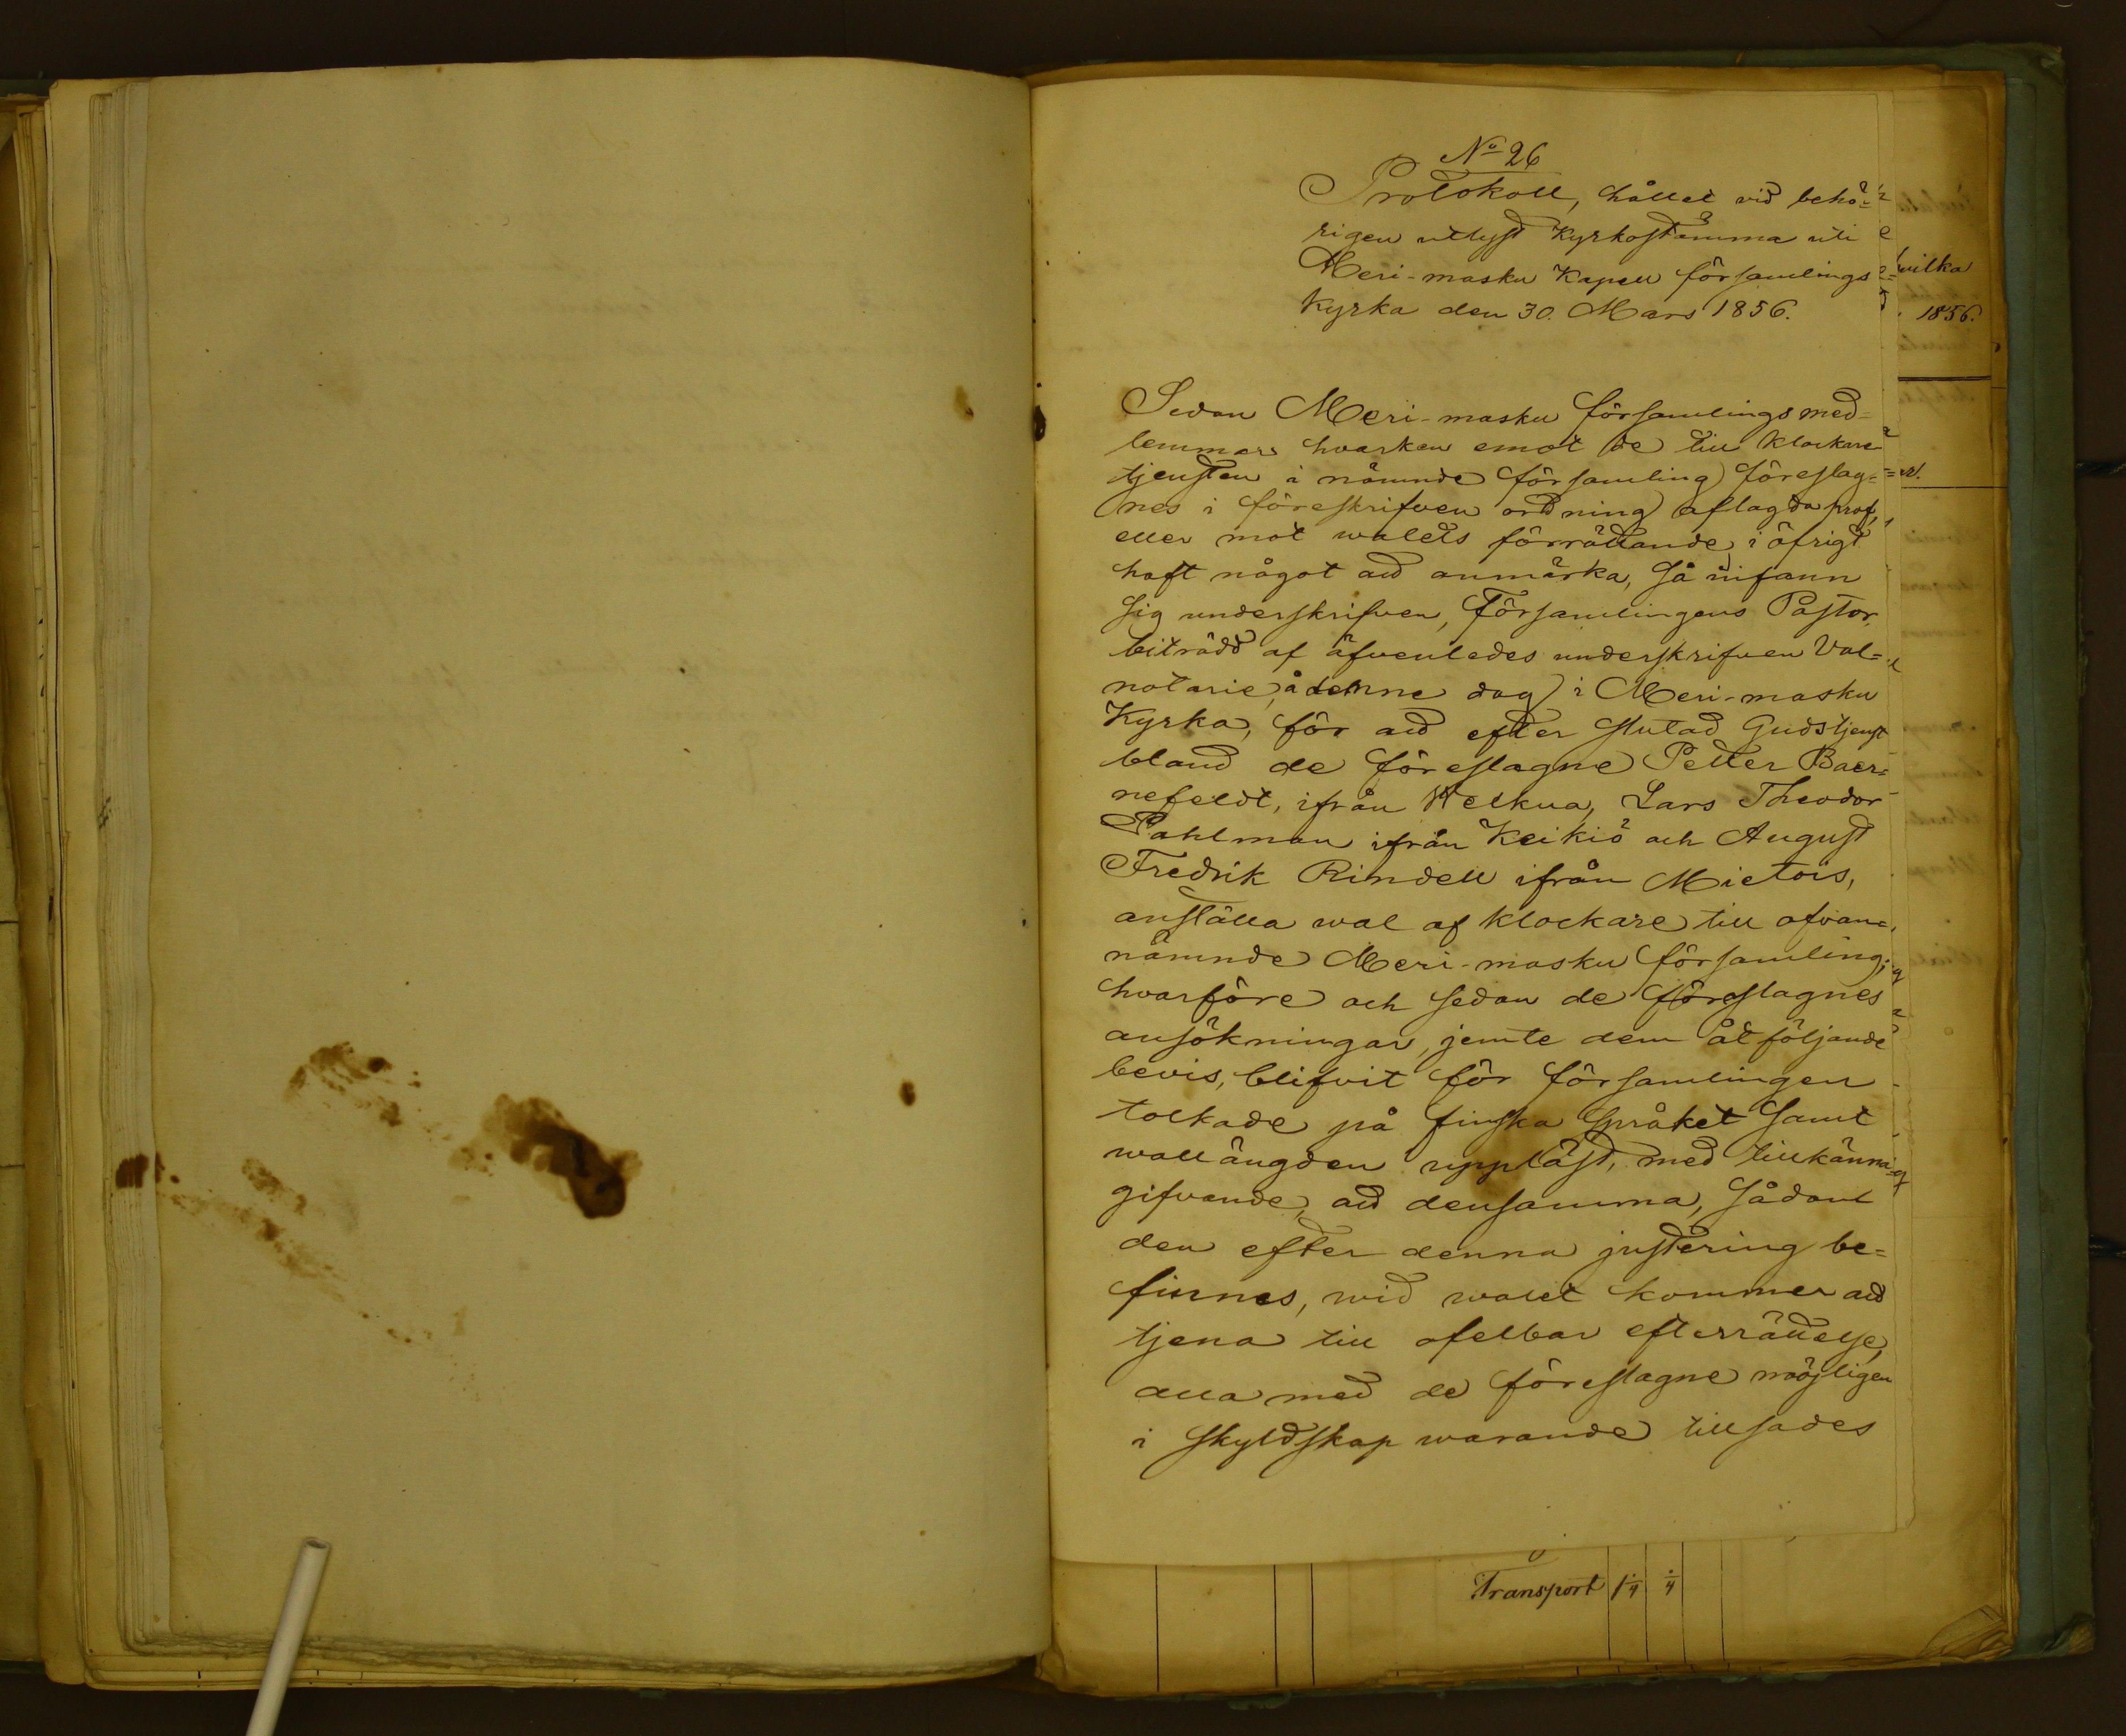 No 26
Protokoll, hållet vid behö-
rigen utlyst Kyrkostämma uti
Meri-masku Kapell församlings
Kyrka den 30. Mars 1856.
Sedan Meri-masku församlings med-
lemmars hvarken emot de till Klockare
tjensten i nämnde församling föreslag-
nes i föreskrifven ordning aflagda prof,
eller mot walets förrättande i öfrigt
haft något att anmärka, så infann
sig underskrifven, Församlingens Pastor,
biträdd af äfvenledes underskrifven Val-
notarie, å denne dag i Meri-masku
Kyrka, för att efter slutad Gudstjenst
bland de föreslagne Petter Baer-
nefeldt, ifrån Welkua, Lars Theodor
Pahlman ifrån Keikiö och August
Fredrik Rindell ifrån Mietois,
anställa wal af klockare till ofvan-
nämnde Meri-masku församling;
hvarföre och sedan de föreslagnes
ansökningar, jemte dem åtföljande
bevis, blifvit för församlingen
tolkade på finska språket samt
wallängden uppläst, med tillkänna-
gifvande, att densamma, sådant
den efter denna justering be-
finnes, wid walet kommer att
tjena till ofelbar efterrättelse,
alla med de föreslagne möjligen
i skyldskap warande tillsades
hwilka
1856.
Transport 1 1/4 1/4